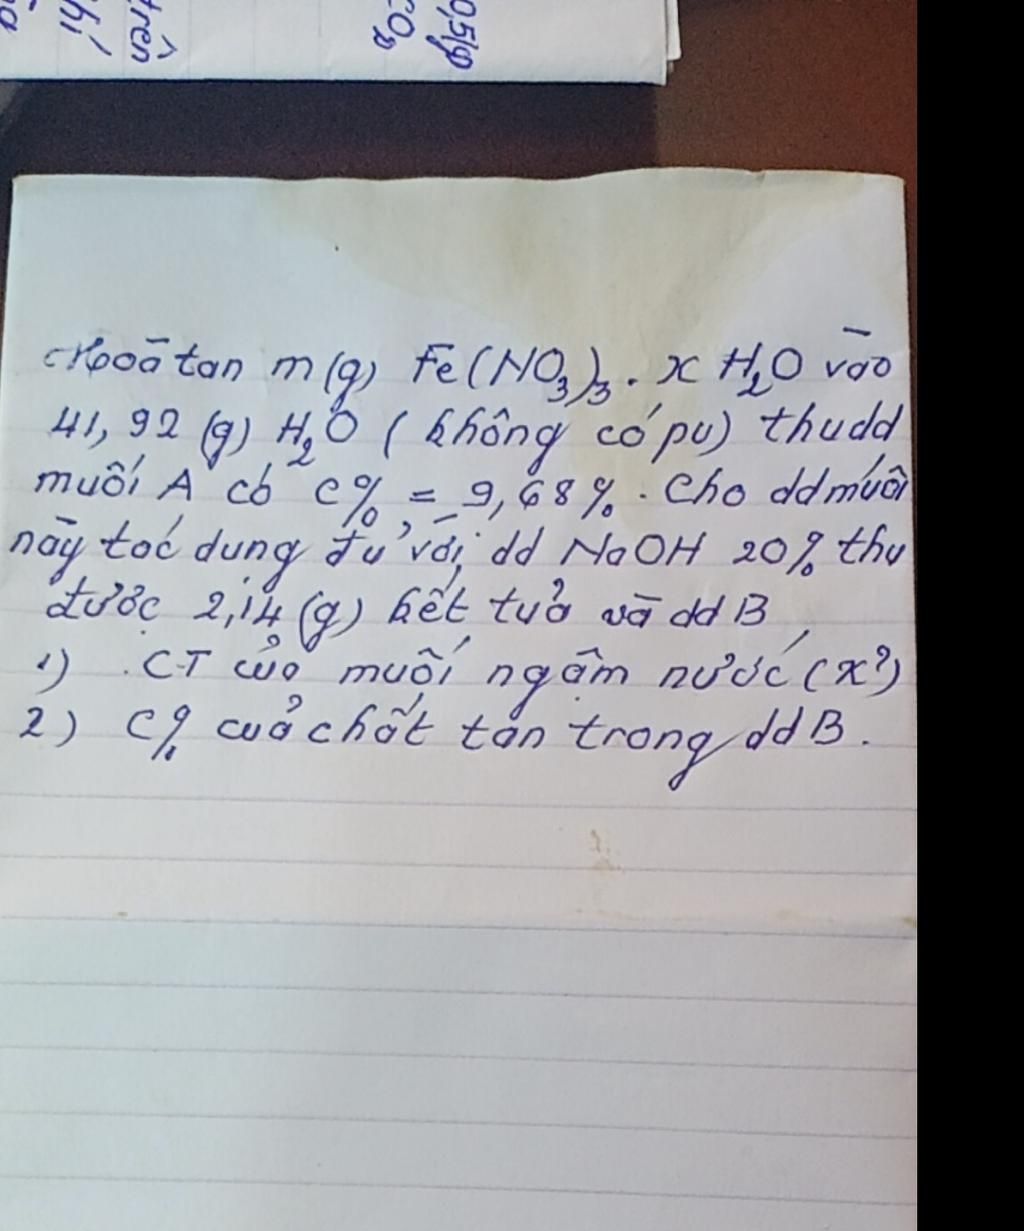 0,5lp
CO₂
trên
hí
Hoà tan m (g) Fe(NO₃)₃ . x H₂O vào
41,92 (g) H₂O ( không có pu) thu dd
muối A có C% = 9,68% . Cho dd muối
này tác dung đủ với dd NaOH 20% thu
được 2,14 (g) kết tuả và dd B
1) . CT của muối ngậm nước (x?)
2) C% cuả chất tan trong dd B .